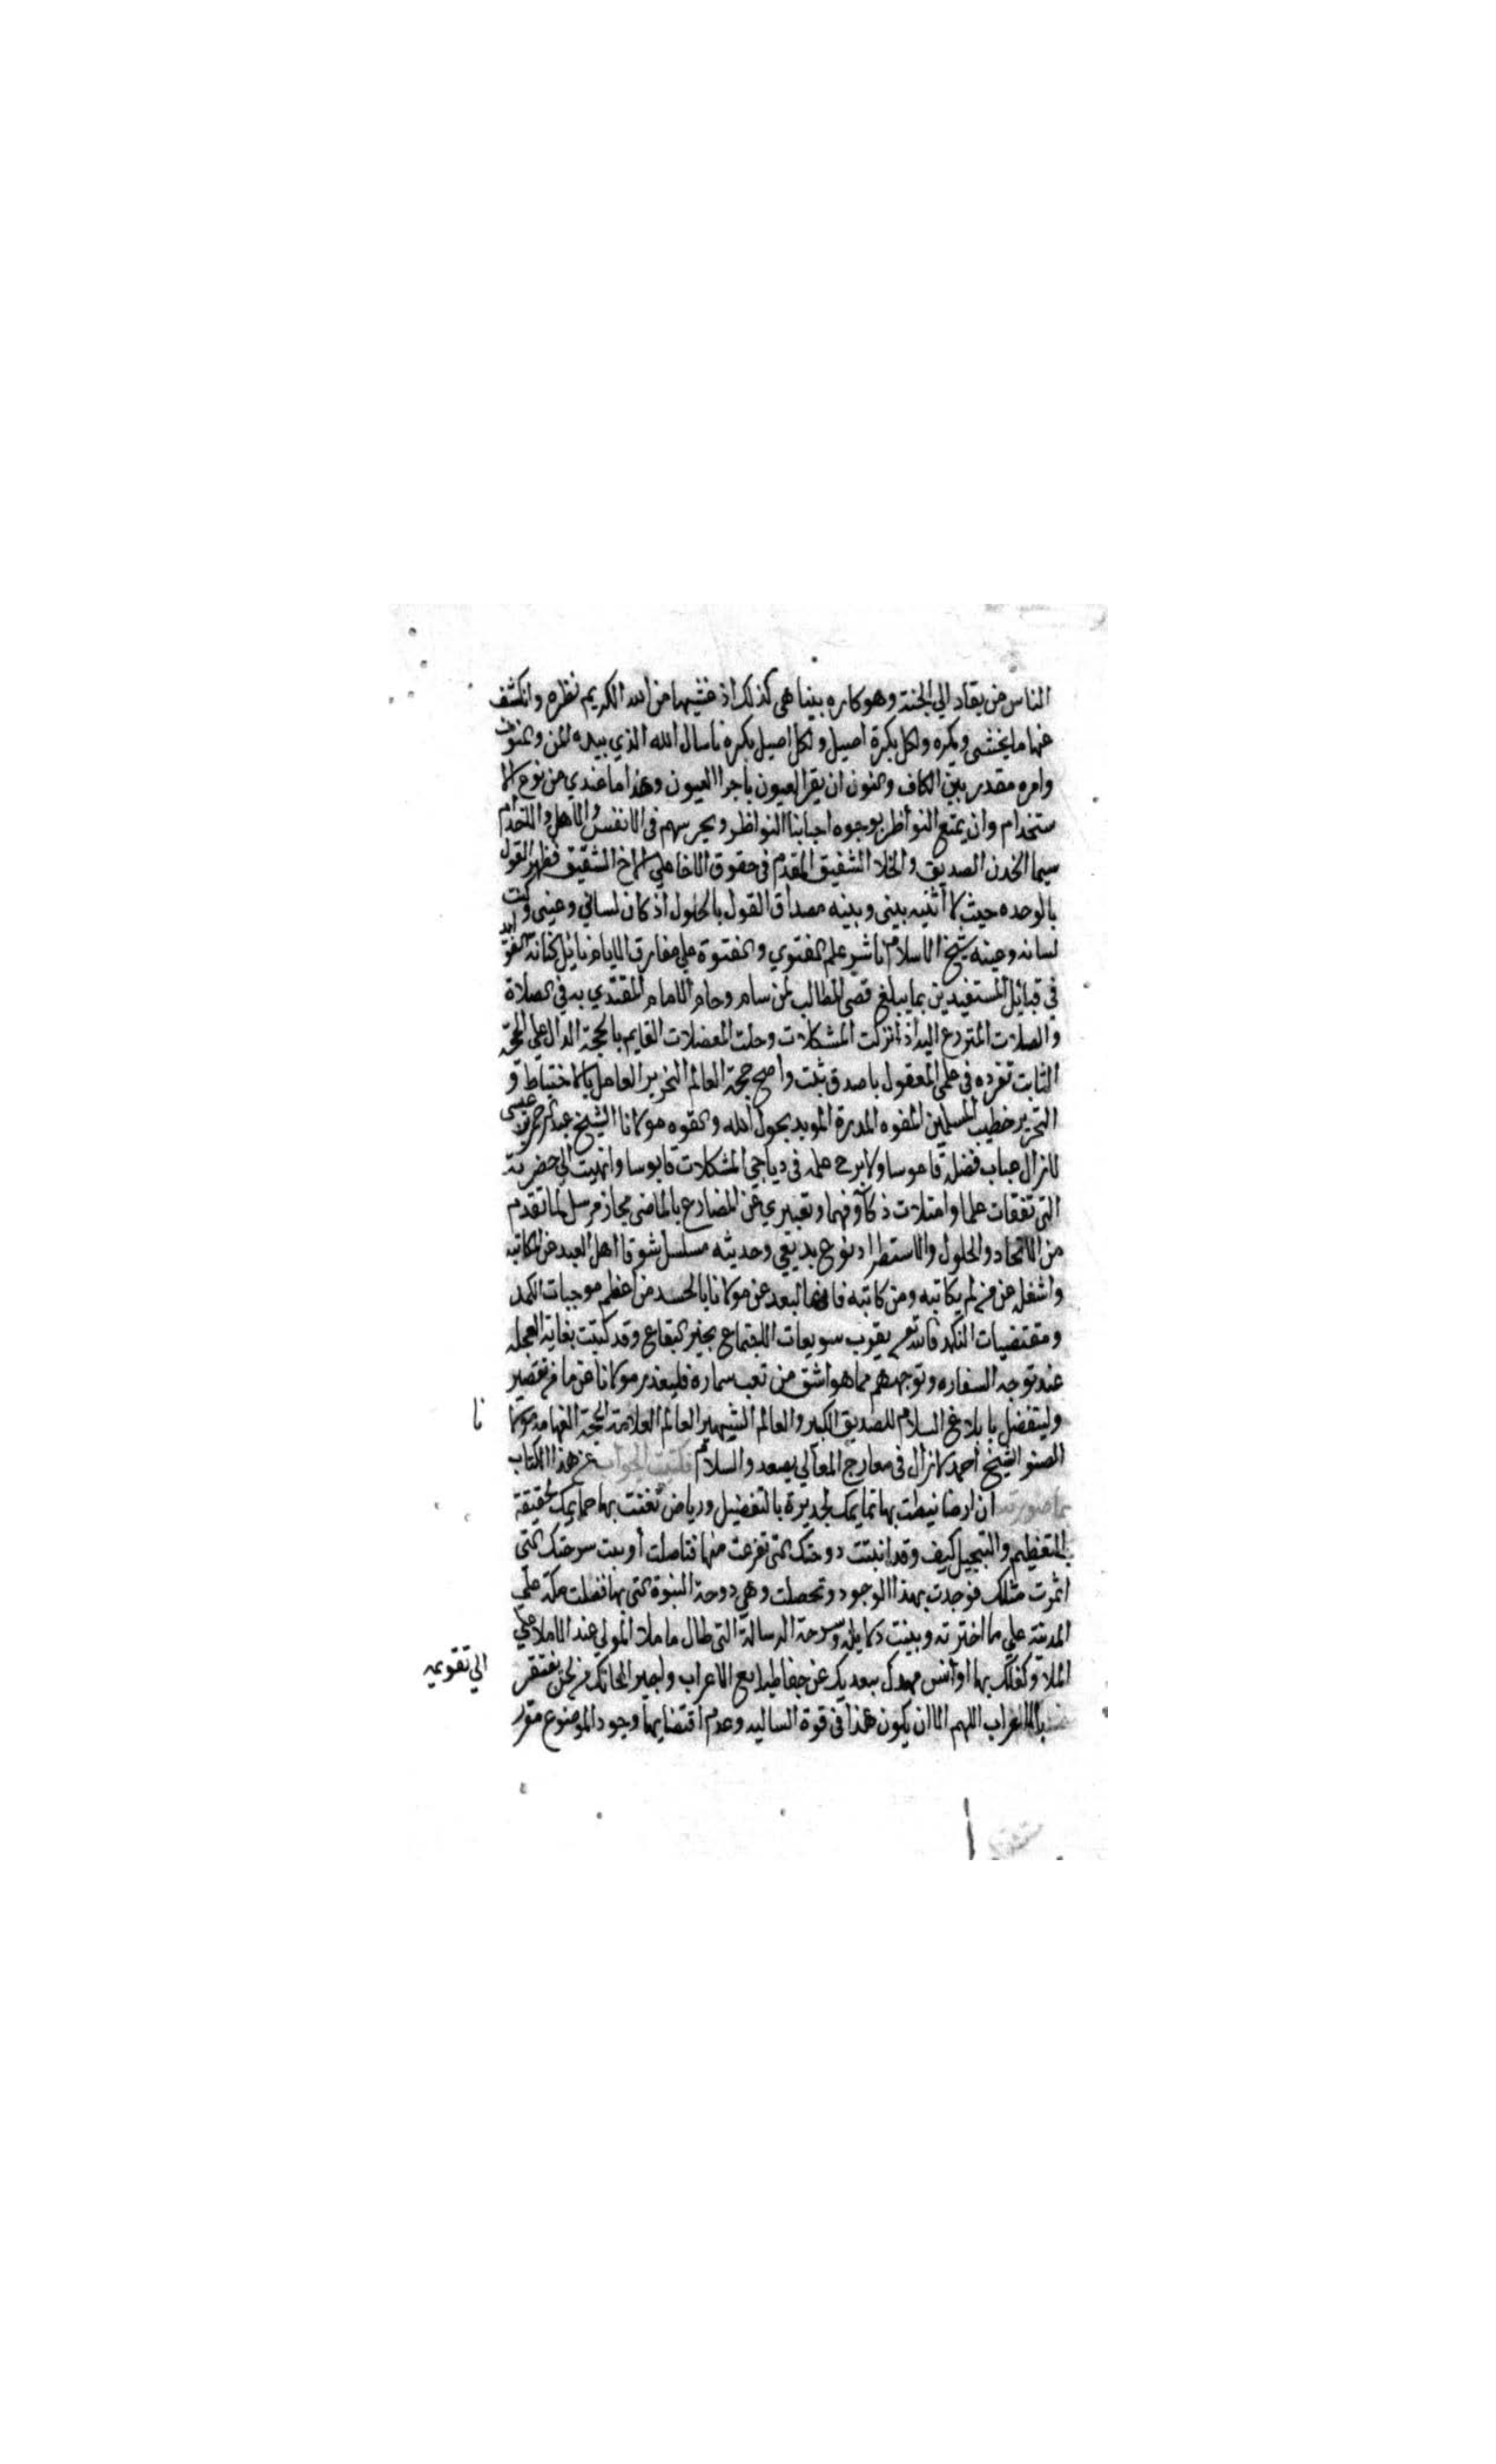 الناس من يقاد الي الجنة وهو كاره بينا هي كذلك اذ غشيها من الله الكريم نظره وانكشف
عنها ما يخشى ويكره ولكل بكرة اصيل ولكل اصيل بكره ناسال الله الذي بيده المن والمنون
وامره مقدر بين الكاف والنون ان يقر العيون باجرا العيون وهذا ما عندي من نوع الا
ستخدام وان يمتع النواظر بوجوه احبابنا النواظر ويحرسهم في الانفس والاهل والخدام
سيما الخدن الصديق والخلا الشفيق المقدم في حقوق الاخا على الاخ الشقيق فظهر القول
بالوحده حيث لا أثنيه بيني وبينه مصداق القول بالحلول اذ كان لساني وعيني وكنت
لسانه وعينه شيخ الاسلام ناشر علم الفتوي والفتوة علي مفارق الايام نايل كنانة
في قبايل المستفيدين بما يبلغ قصى المطالب لمن سام وحام الامام المقتدي به في الصلاة
والصلات اليه اذا نزلت المشكلات وحلت المعضلات القايم بالحجة الدال على المحجة
الثابت تفرده في علمي المعقول باصدق ثبت واصح حجة العالم النحرير العامل بالاحتياط و
التحرير خطيب المسلمين المفوه المدره المويد بحول الله والقوه مولانا الشيخ عبد الرحمن عيسى
لا زال عباب فضله قاموسا ولا برح علمه في دياجي المشكلات فانوسا وانهيت الي حضرته
التي تفقات علما وامتلات ذكآ وفهما وتعبيري عن المضارع بالماضى مجاز مرسل لما تقدم
من الاتحاد والحلول والاستطراد نوع بديعي وحديثه مسلسل شوقا اهل العبد عن المكاتبه
واشغله عن من لم يكاتبه ومن كاتبه فان البعد عن مولانا بالجسد من اعظم موجبات الكمد
ومقتضيات النكد فالله تعالى يقرب سويعات الاجتماع بخير البقاع وقد كتبت بغاية العجله
عند توجه السفاره وتوجههم مما هو اشق من تعب سماره فليعذر مولانا عن ما من تقصير
وليتفضل بابلاغ السلام للصديق الكبير والعالم الشهير العالم العلامة الحجة الفهامة مولا
نا
الصنو الشيخ احمد لا زال في معارج المعالي يصعد والسلام فكتبت الجواب عن هذا الكتاب
بما صورته ان ارضا نيطت بها تمايمك لجديرة بالتفضيل ورياض تغنت بها حمايمك لحقيقة
بالتعظيم والتبجيل كيف وقد انبتت دوحتك التي تفرعت منها فتاصلت أو سرحتك التي
اثمرت مثلك فوجدت بهذا الوجود وتحصلت وهي دوحة النبوة التي بها فضلت مكة على
المدينة علي ما اخترته وبينت دلايله وسرحة الرسالة التي طال ما ملا المولي عند الاملا على
الملا وكفلك بها اوانس مهدك ببعديك عن جفا طبايع الاعراب ولجين الحانك من لحن يفتقر
الي تقويمه
بالاعراب اللهم الا ان يكون هذا في قوة السالبه وعدم اقتضايها وجود الموضوع مقرر